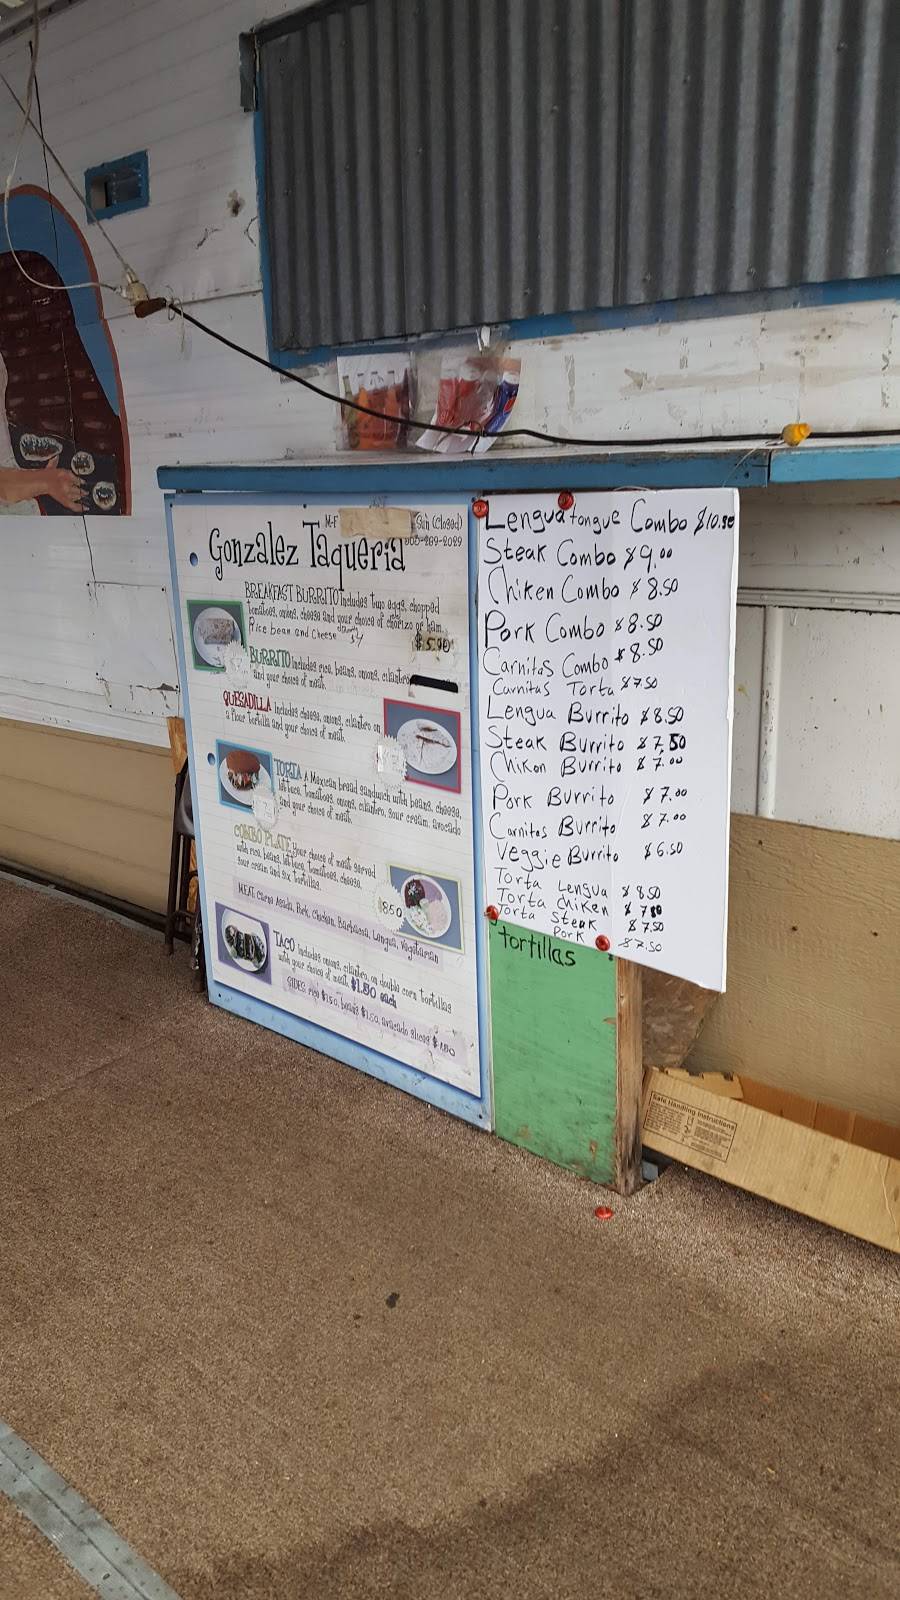 M-F Sun (Closed)
Gonzalez Taqueria
BREAKFAST BURRITO Includes two eggs, chopped
tomatoes, onions, cheese and your choice of chorizo or ham.
Rice bean and Cheese $4 $5.00
BURRITO includes rice, beans, onions, cilantro
and your choice of meat.
QUESADILLA includes cheese, onions, cilantro on
a flour tortilla and your choice of meat.
TORTA A Mexican bread sandwich with beans, cheese,
lettuce, tomatoes, onions, cilantro, sour cream, avocado
and your choice of meat.
COMBO PLATE your choice of meat served
with rice, beans, lettuce, tomatoes, cheese,
sour cream and six tortillas.
$8.50
MEAT: Carne Asada, Pork, Chicken, Barbacoa, Lengua, Vegetarian
TACO includes onions, cilantro, on double corn tortillas
with your choice of meat. $1.50 each
SIDES: rice $1.50, beans $1.50, avocado slices $1.50
Lengua tongue Combo $10.50
Steak Combo $9.00
Chiken Combo $8.50
Pork Combo $8.50
Carnitas Combo $8.50
Carnitas Torta $7.50
Lengua Burrito $8.50
Steak Burrito $7.50
Chikon Burrito $7.00
Pork Burrito $7.00
Carnitas Burrito $7.00
Veggie Burrito $6.50
Torta Lengua $8.50
Torta Chiken $7.50
Torta Steak $7.50
Pork $7.50
tortillas
Safe Handling Instructions